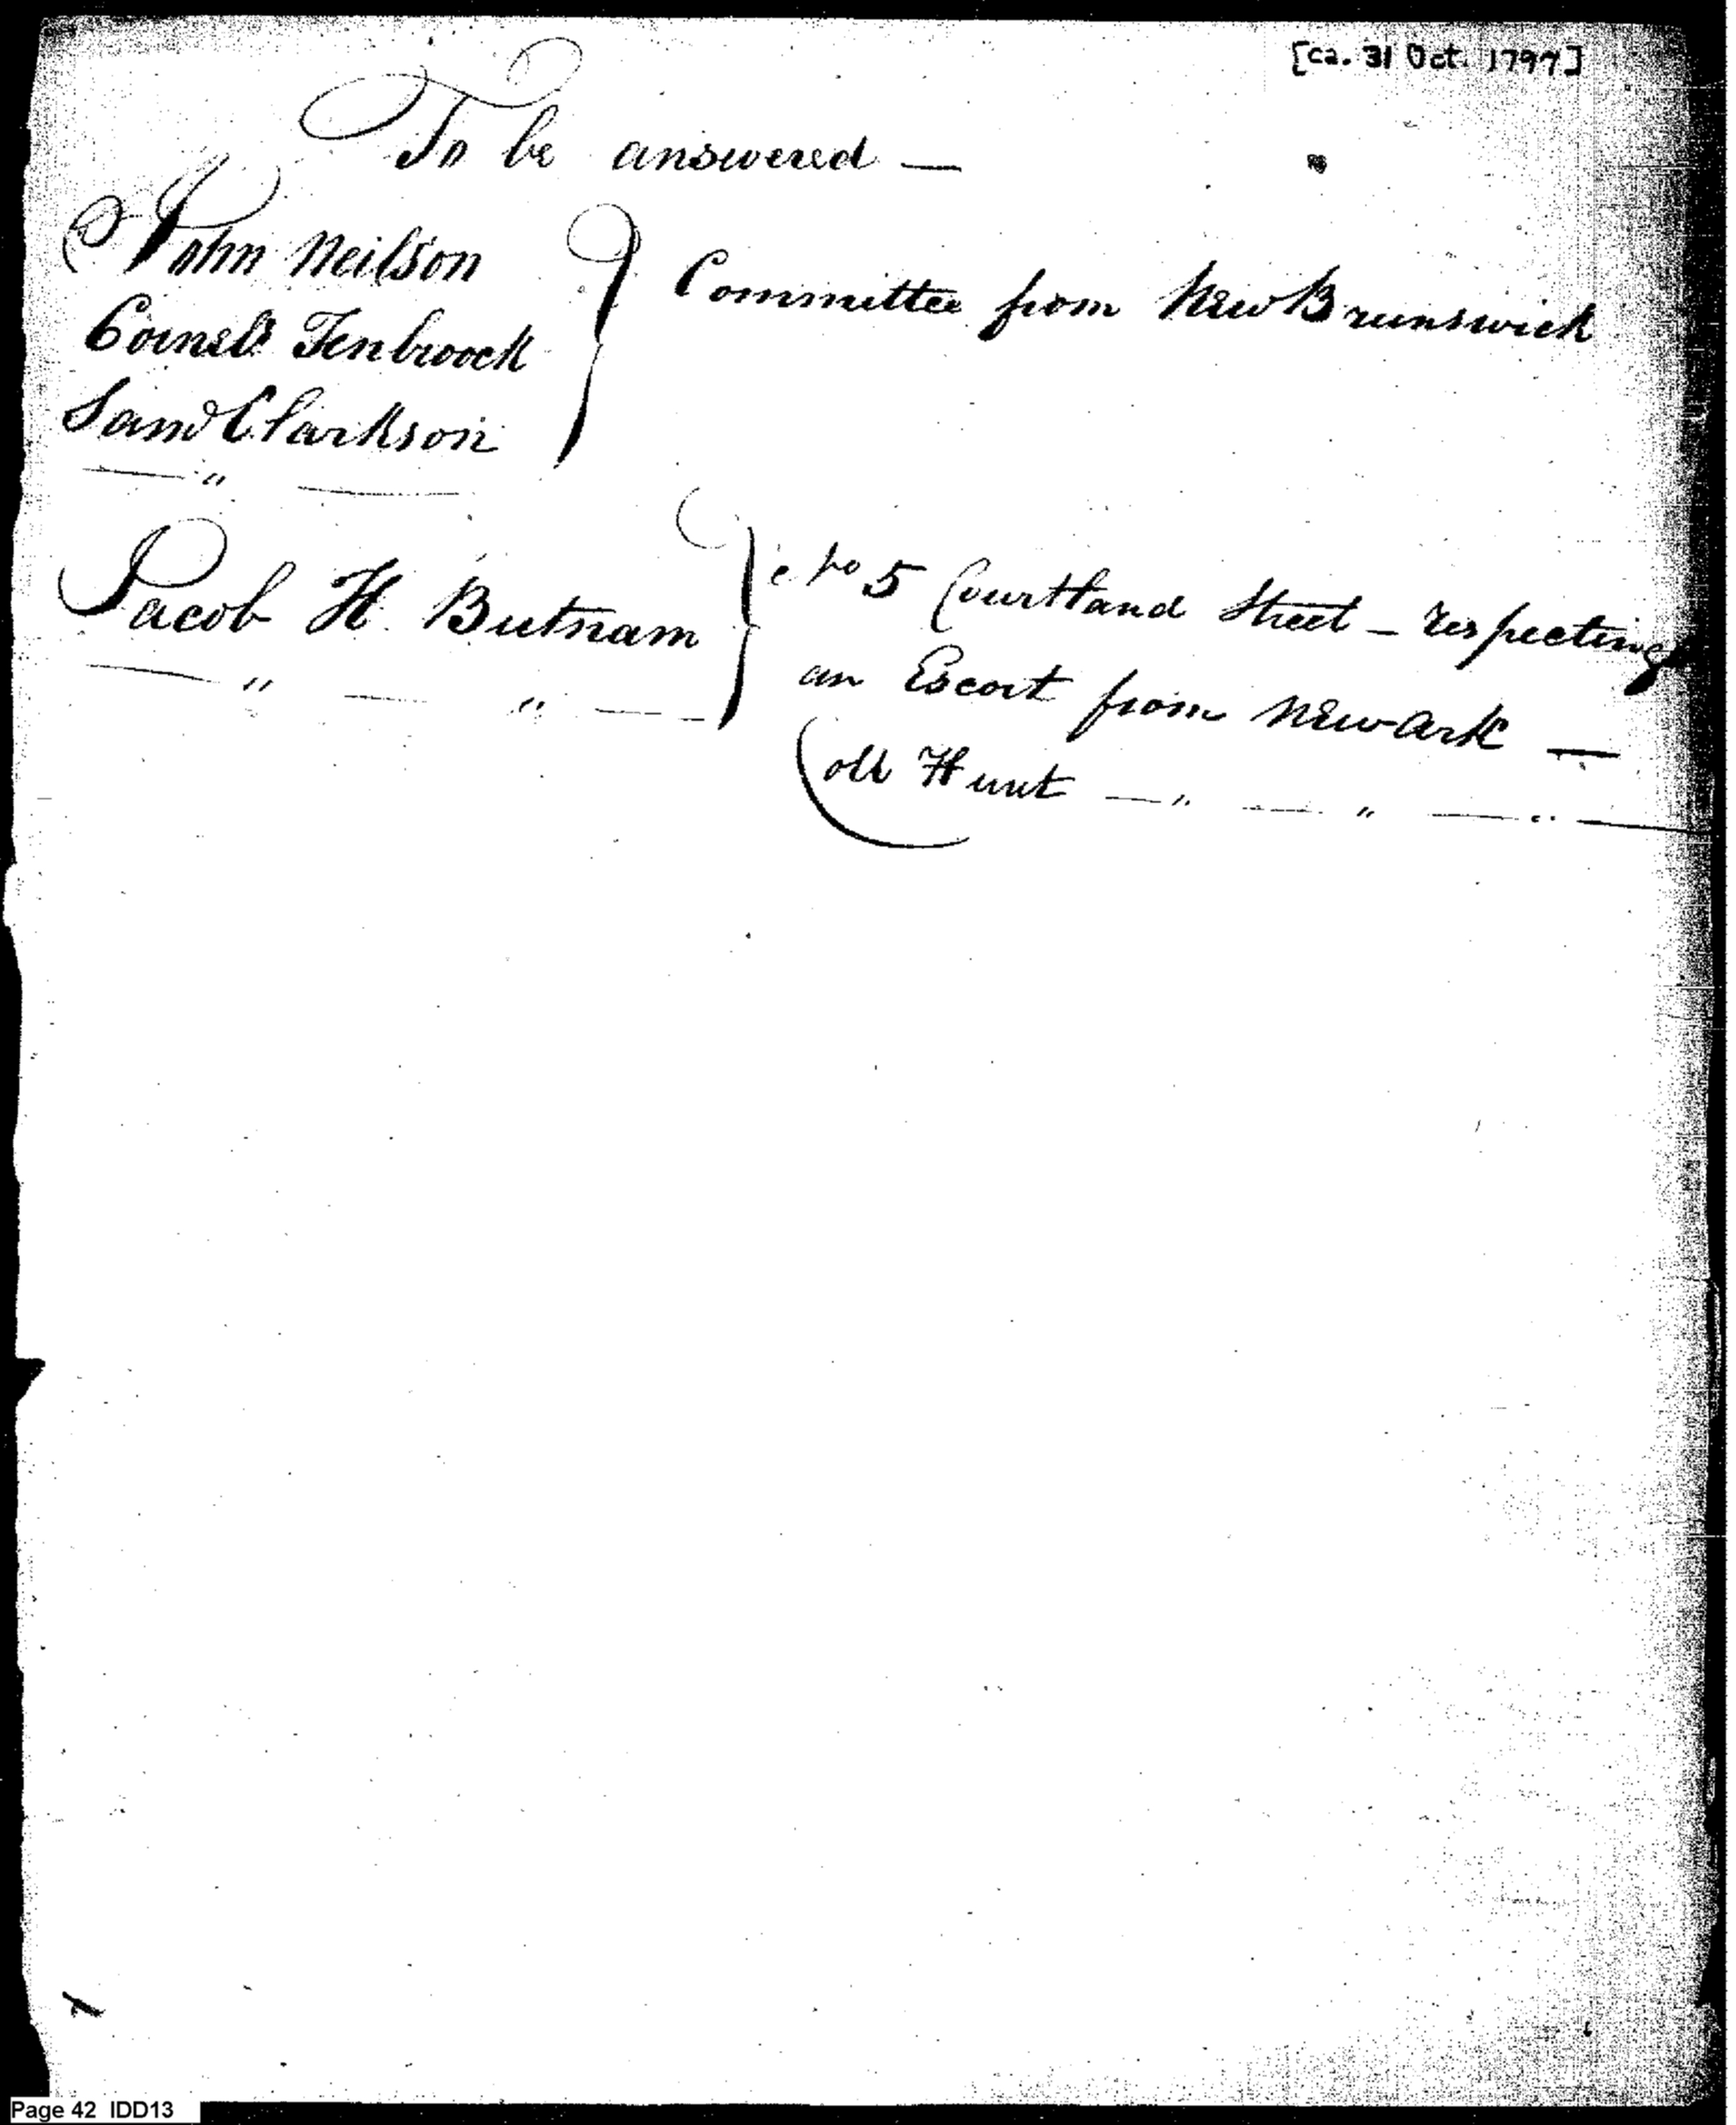 [ca. 31 Oct. 1797]
To be answered —
John Neilson
Cornels Tenbroock
Saml Clarkson
} Committee from New Brunswick
Jacob H Butnam } No 5 Courtland Street — respecting
an Escort from Newark —
Coll Hunt — " — " — " —
Page 42 IDD13